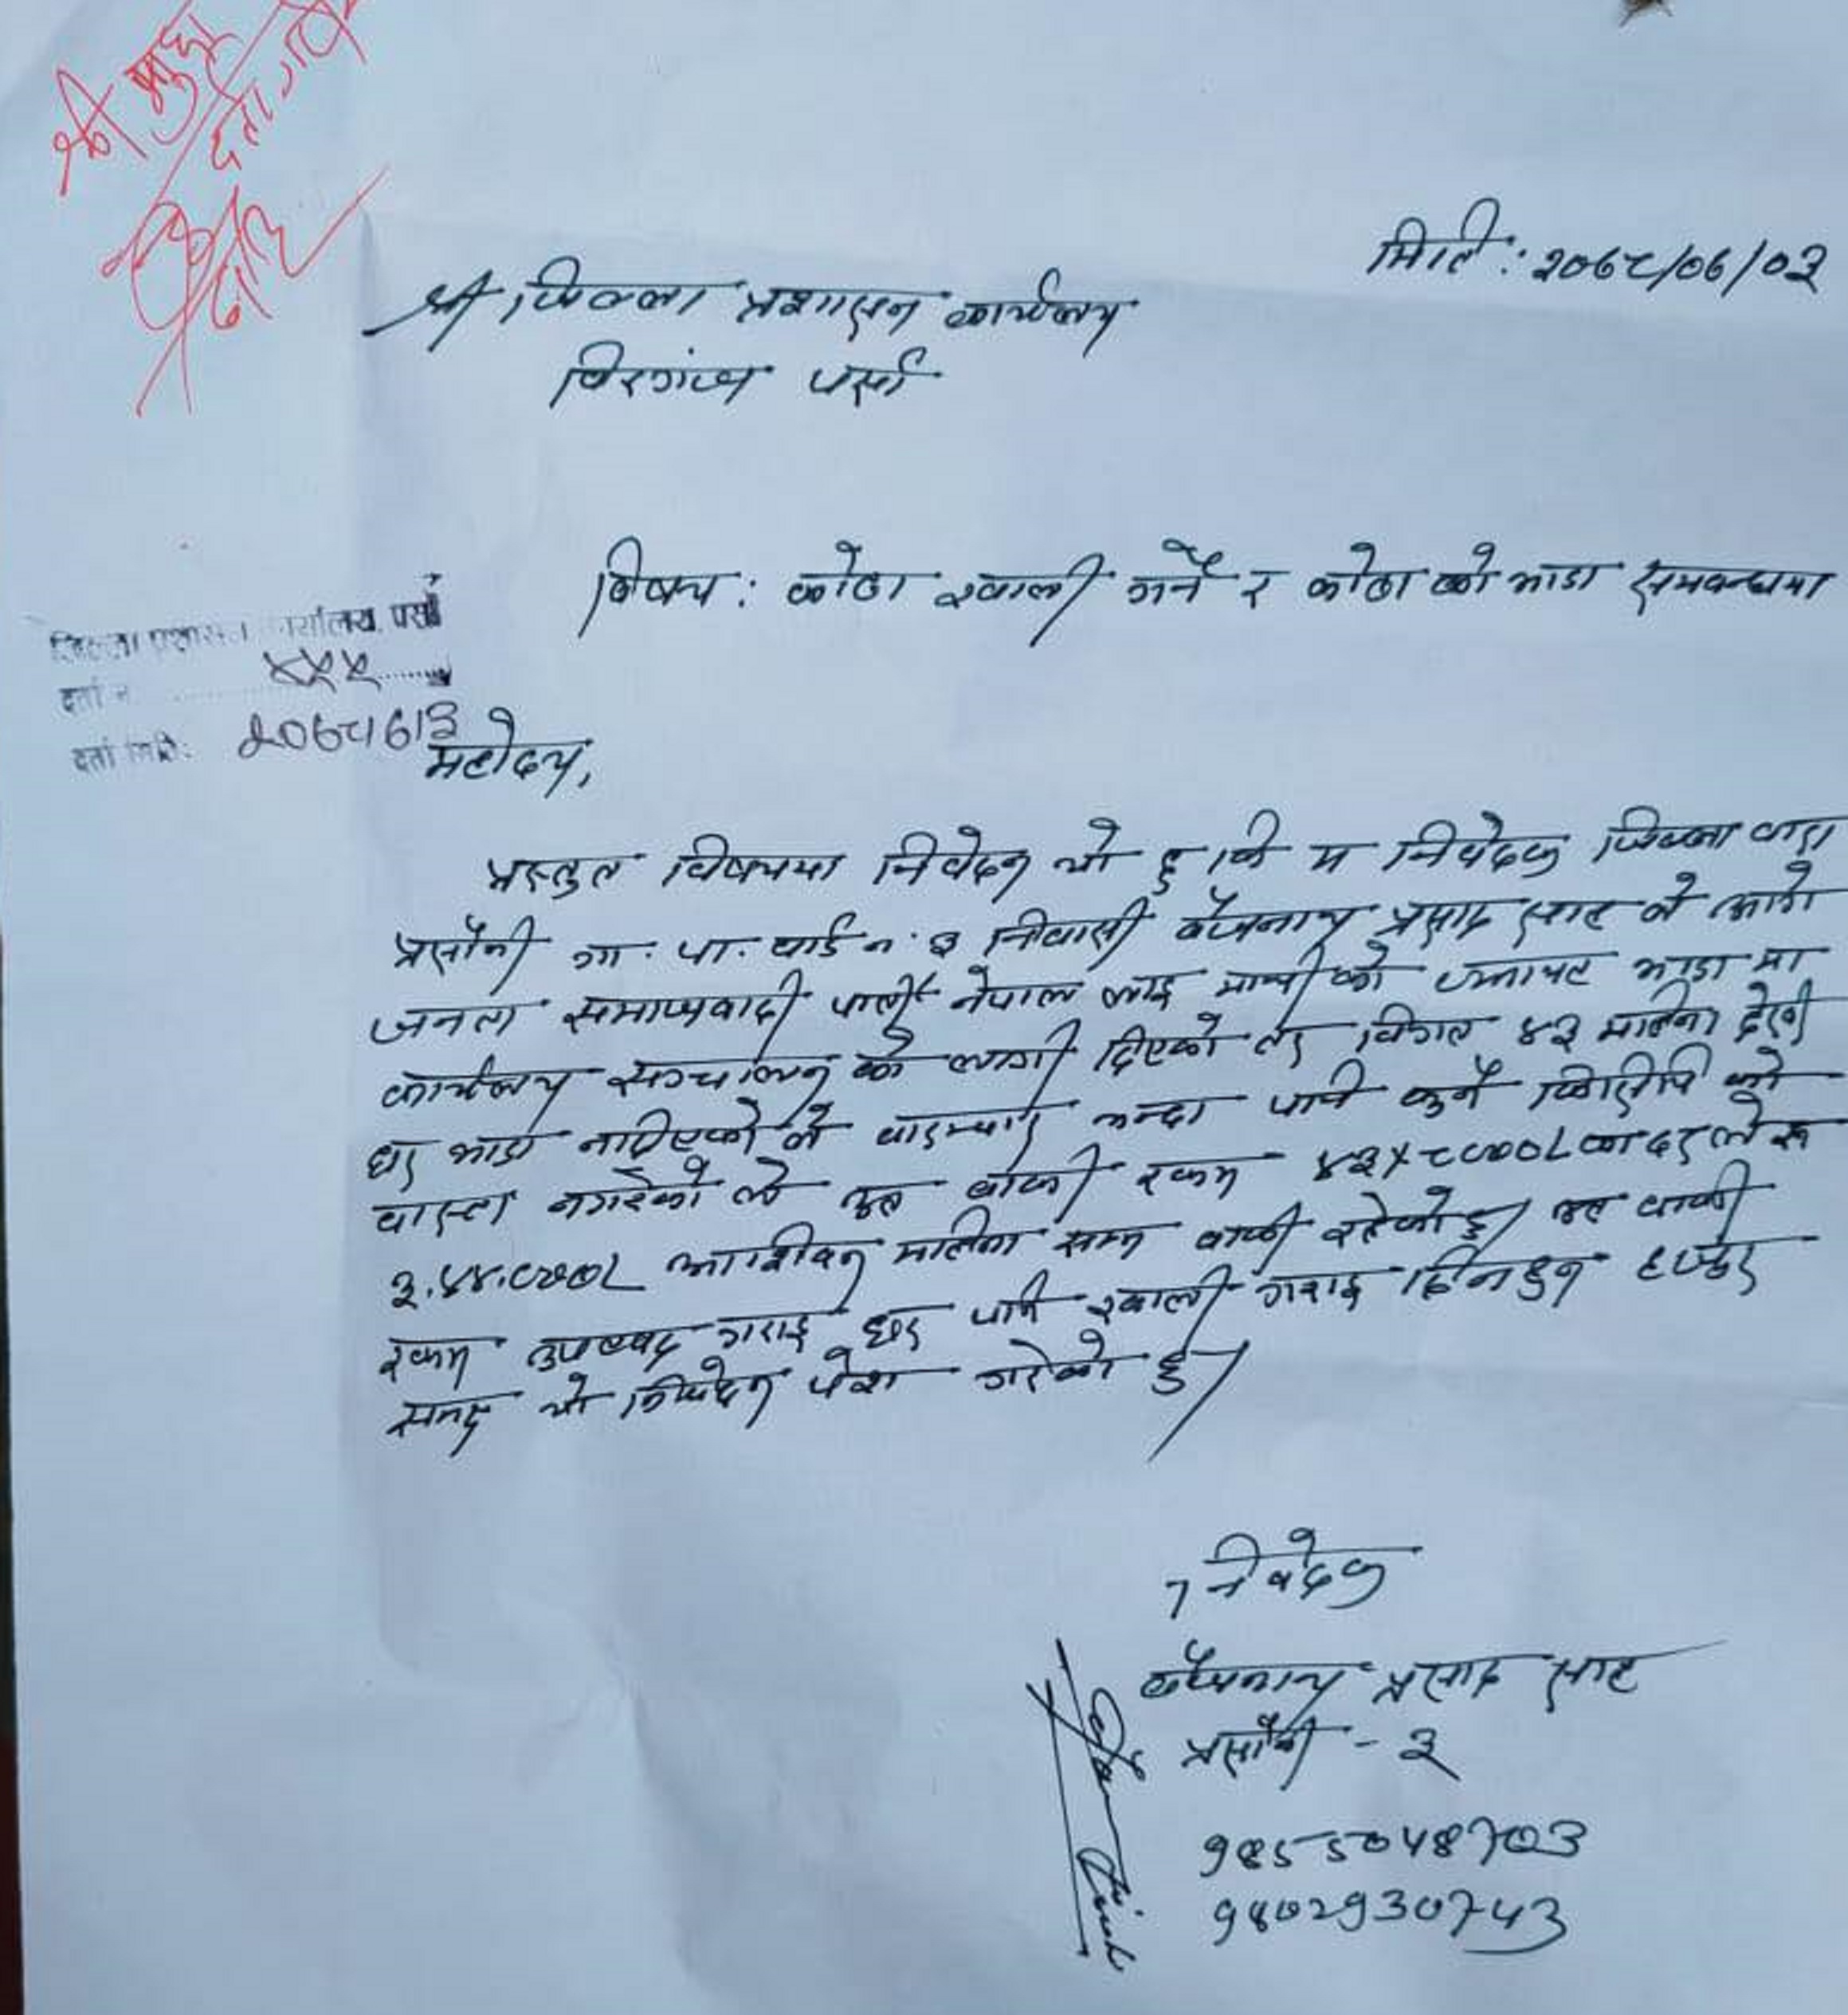 श्री मुद्दा
दर्ता गर्ने
मिति: २०७८/०६/०३
श्री जिल्ला प्रशासन कार्यलय
विरगंज पर्सा
विषय: कोठा खाली गर्ने र कोठा को भाडा सम्बन्धमा
जिल्ला प्रशासन कार्यालय, पर्सा
दर्ता नं
दर्ता मिति: २०७८।६।३
महोदय,
प्रस्तुत विषयमा निवेदन यो छ कि म निवेदक जिल्ला बारा
प्रसौनी गा. पा. वार्ड न. ३ निवासी बैजनाथ प्रसाद साह ले
जनता समाजवादी पार्टी नेपाल लाइ माथीको फ्लायट भाडा मा
कार्यलय सञ्चालन को लागी दिएको तर विगत ४३ महिना देखी
घर भाडा नदिएको ले बारम्बार भन्दा पनि कुनै किसिमि को
वास्ता नगरेको ले कुल बाँकी रकम ४३×८०००/ का दर ले रू
३,४४,०००/ आश्विन महिना सम्म बाकी रहेको छ। कुल बाकी
रकम उपलब्ध गराइ घर पनि खाली गराइ दिनहुन हजुर
समक्ष यो निवेदन पेश गरेको छु।
निवेदक
बैजनाथ प्रसाद साह
प्रसौनी - ३
9855048703
9802930743